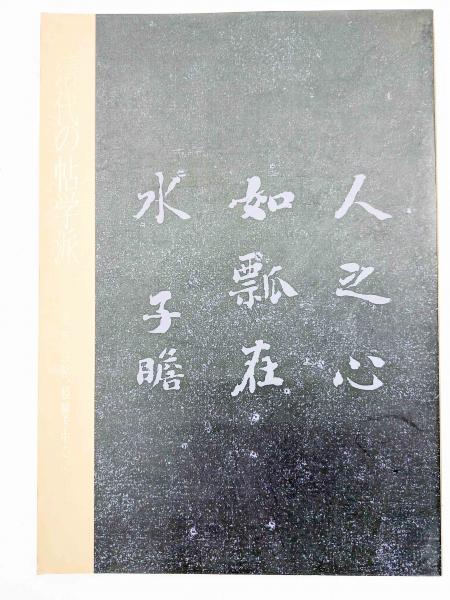 人之心
如瓢在
水 子瞻
清代の帖学派